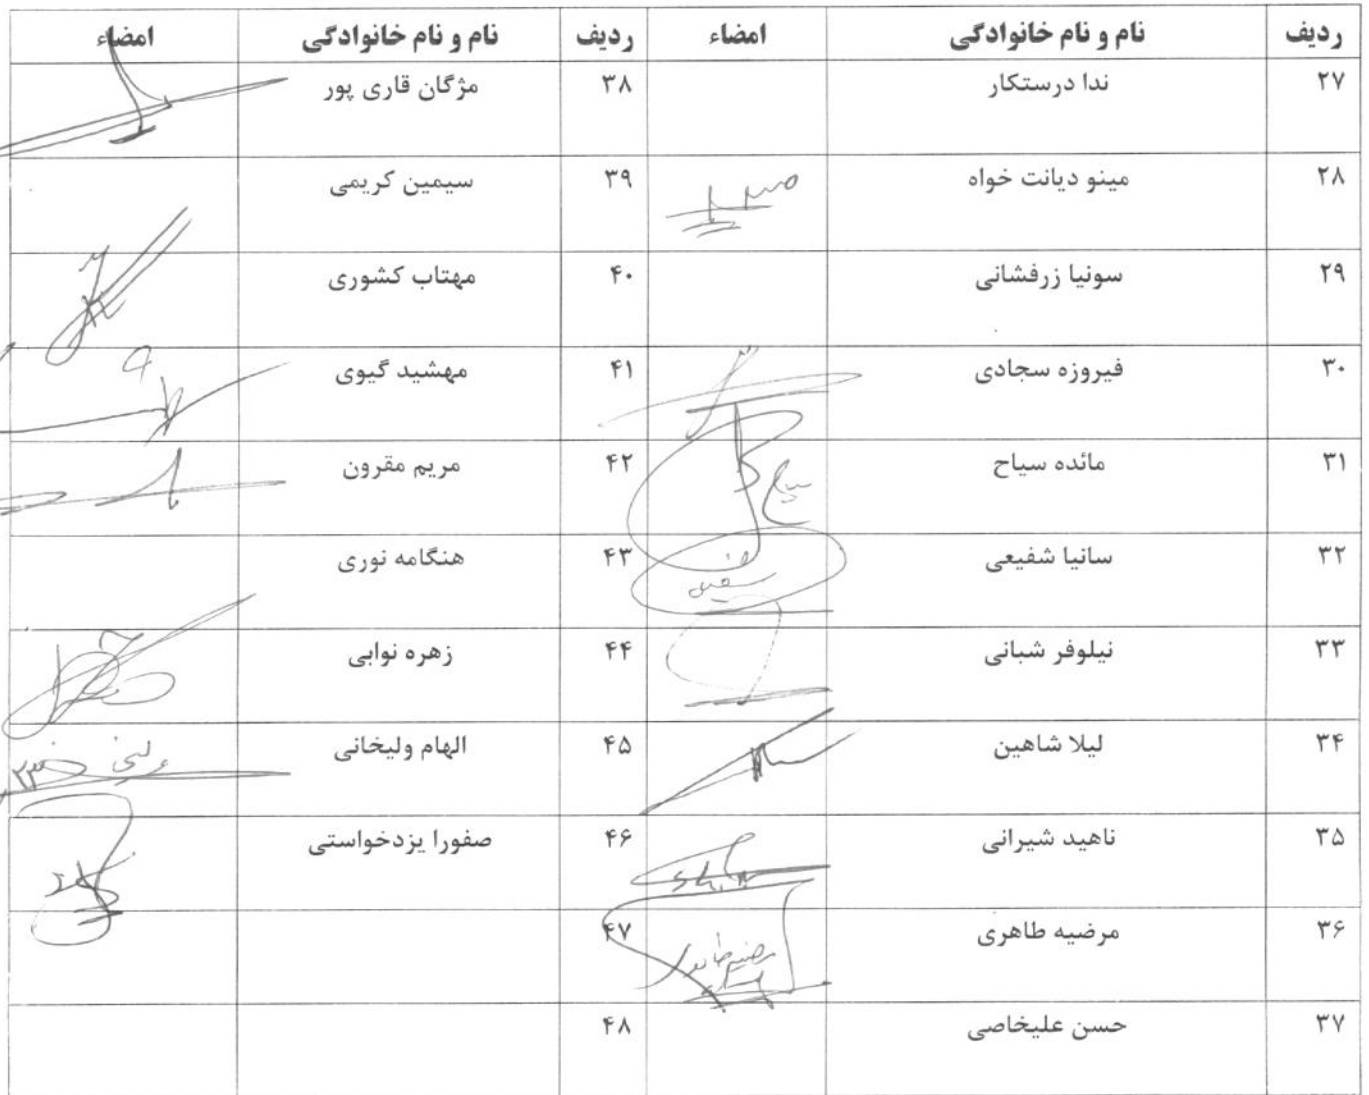 ردیف نام و نام خانوادگی امضاء ردیف نام و نام خانوادگی امضاء
۲۷ ندا درستکار ۳۸ مژگان قاری پور
۲۸ مینو دیانت خواه ۳۹ سیمین کریمی
۲۹ سونیا زرفشانی ۴۰ مهتاب کشوری
۳۰ فیروزه سجادی ۴۱ مهشید گیوی
۳۱ مائده سیاح سیاح ۴۲ مریم مقرون
۳۲ سانیا شفیعی شفیعی ۴۳ هنگامه نوری
۳۳ نیلوفر شبانی ۴۴ زهره نوابی
۳۴ لیلا شاهین ۴۵ الهام ولیخانی
۳۵ ناهید شیرانی ۴۶ صفورا یزدخواستی
۳۶ مرضیه طاهری مرضیه طاهری ۴۷
۳۷ حسن علیخاصی ۴۸